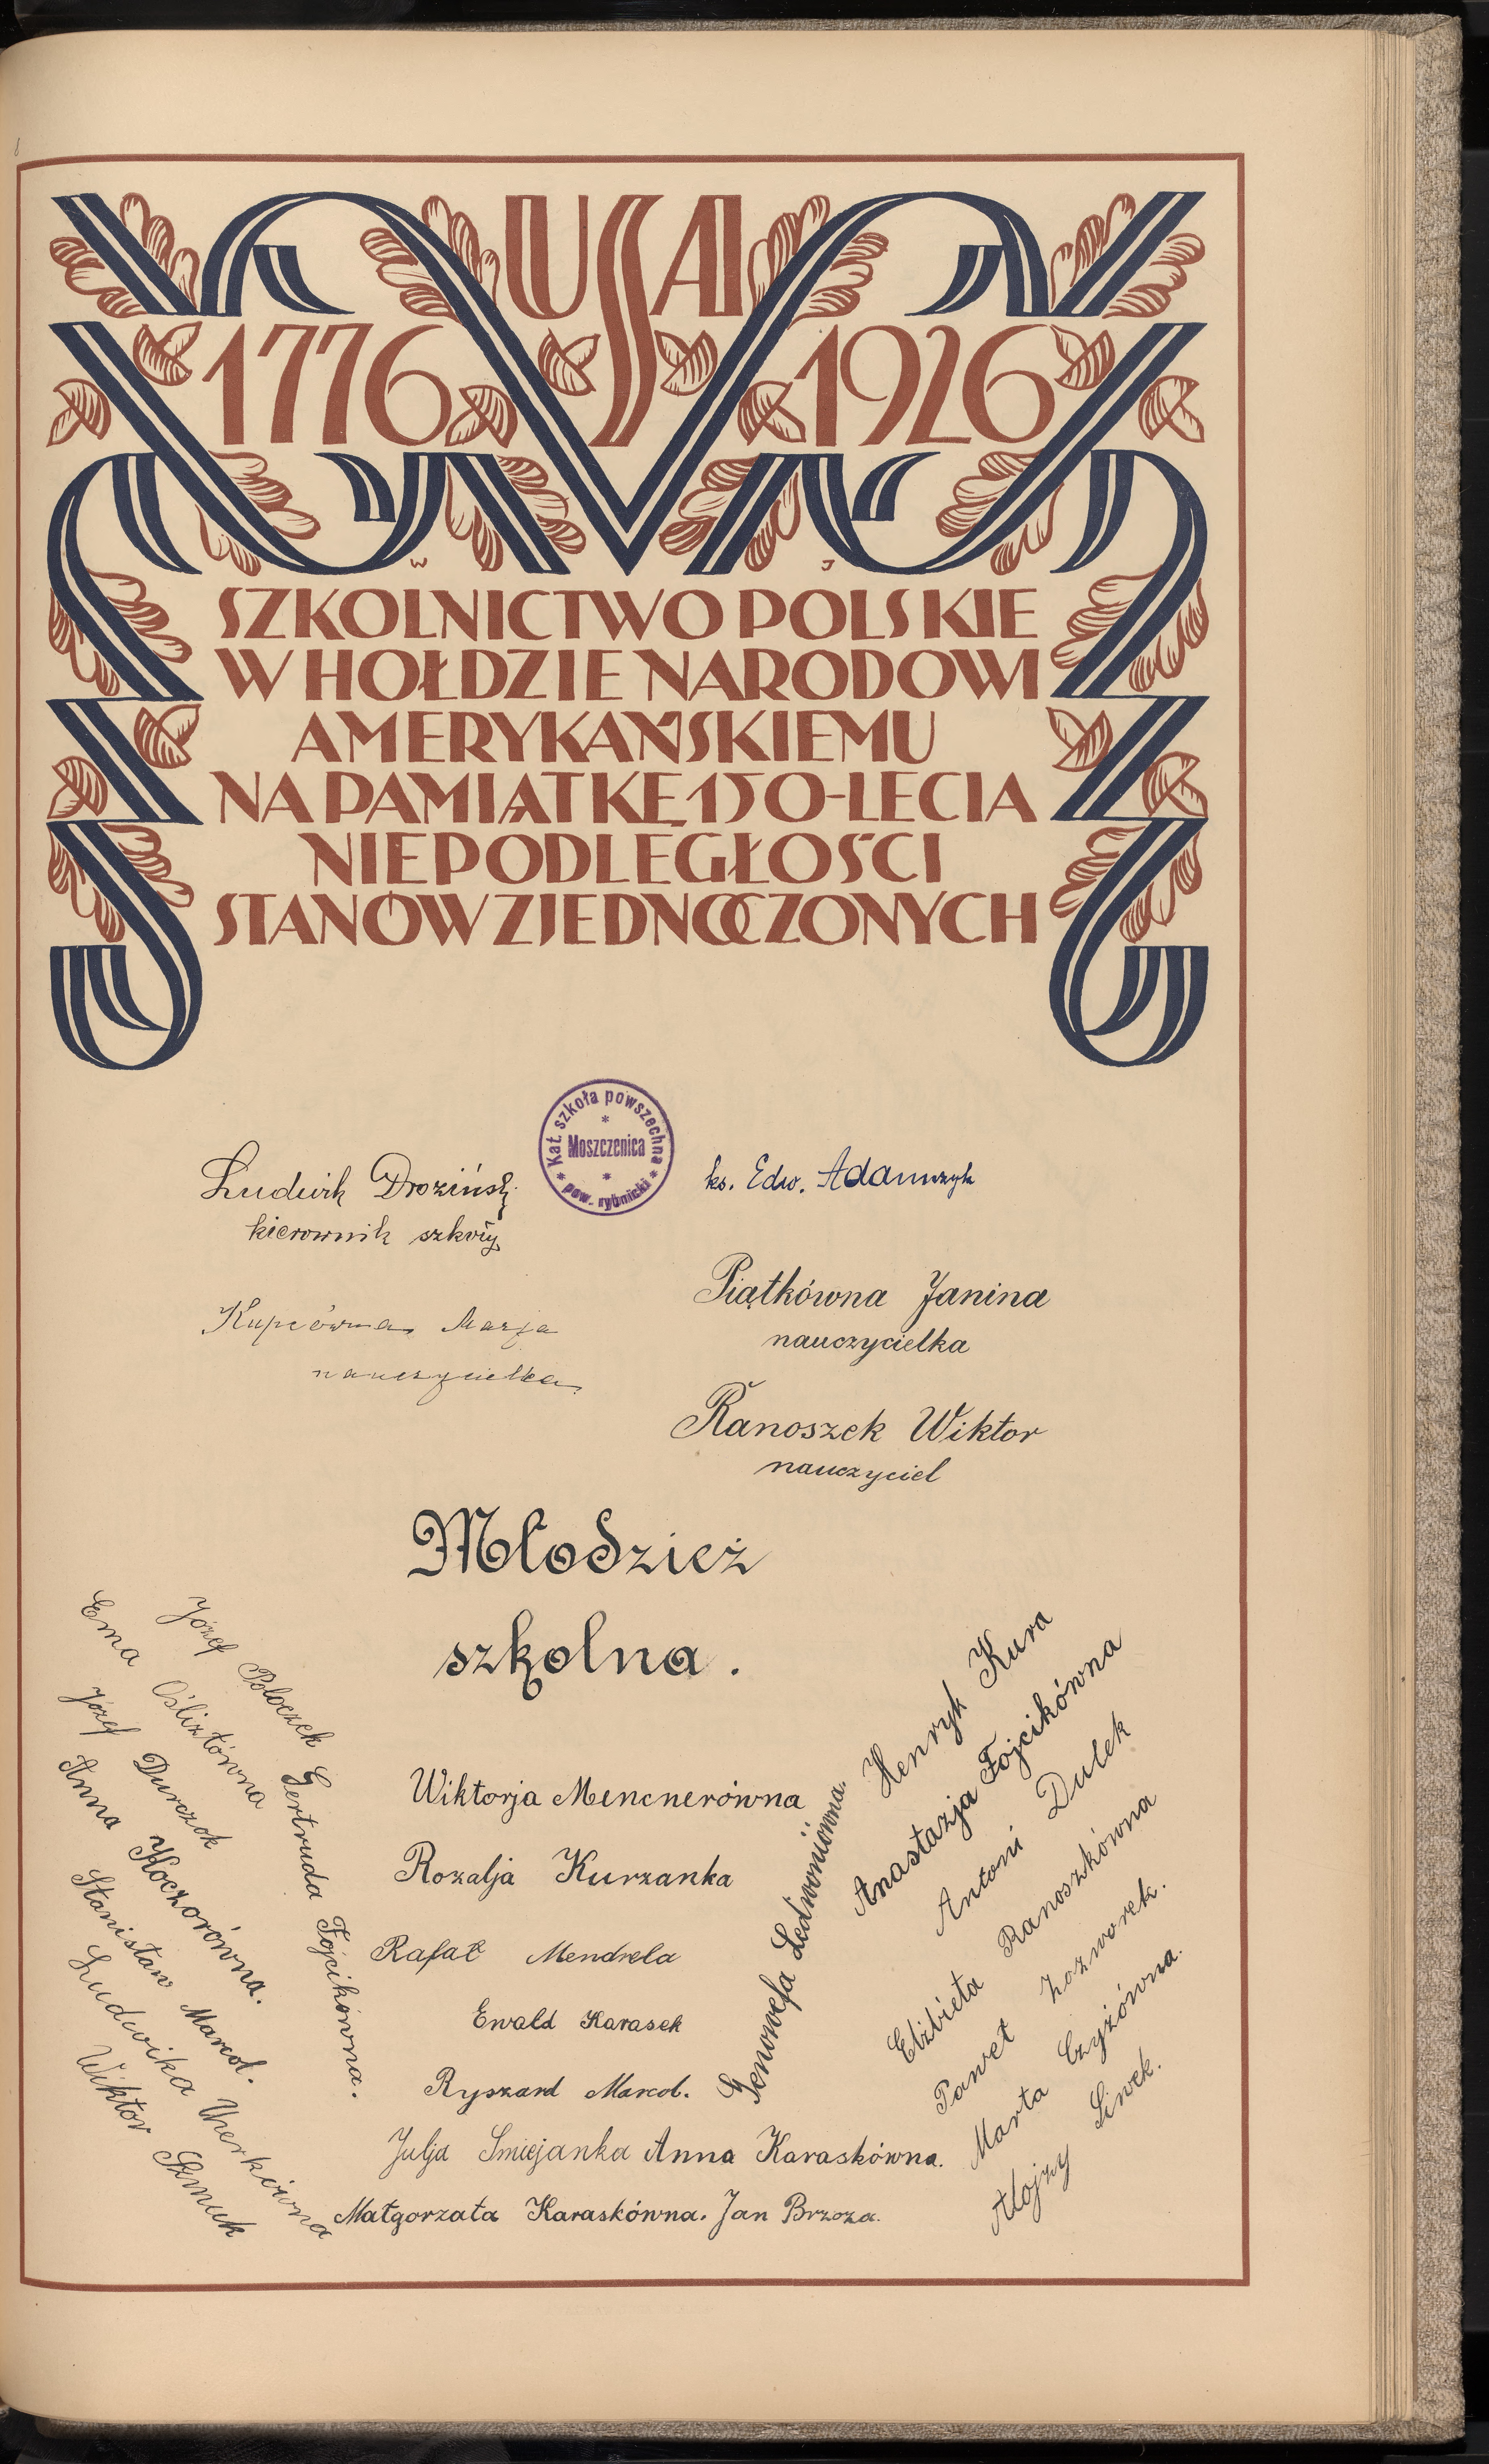 USA
1776 1926
W J
SZKOLNICTWO POLSKIE
W HOŁDZIE NARODOWI
AMERYKAŃSKIEMU
NA PAMIĄTKĘ 150-LECIA
NIEPODLEGŁOŚCI
STANÓW ZJEDNOCZONYCH
Kat. szkoła powszechna
Moszczenica
pow. rybnicki
Ludwik Droziński
kierownik szkoły
ks. Edw. Adamczyk
Kupcówna Marja
nauczycielka
Piątkówna Janina
nauczycielka
Ranoszek Wiktor
nauczyciel
Młodzież
szkolna.
Józef Połoczek
Ema Oślizłówna
Józef Durczok
Anna Koczorówna.
Stanisław Marcol.
Ludwika
Wiktor
Gertruda Fojcikówna.
Wiktorja Mencnerówna
Rozalja Kurzanka
Rafał Mendrela
Ewald Karasek
Ryszard Marcol.
Julja Smiejanka Anna Karaskówna.
Małgorzata Karaskówna. Jan Brzoza.
Genowefa
Henryk Kura
Anastazja Fojcikówna
Antoni Dulek
Elżbieta Ranoszkówna
Paweł
Marta Czyżówna.
Alojzy Siwek.